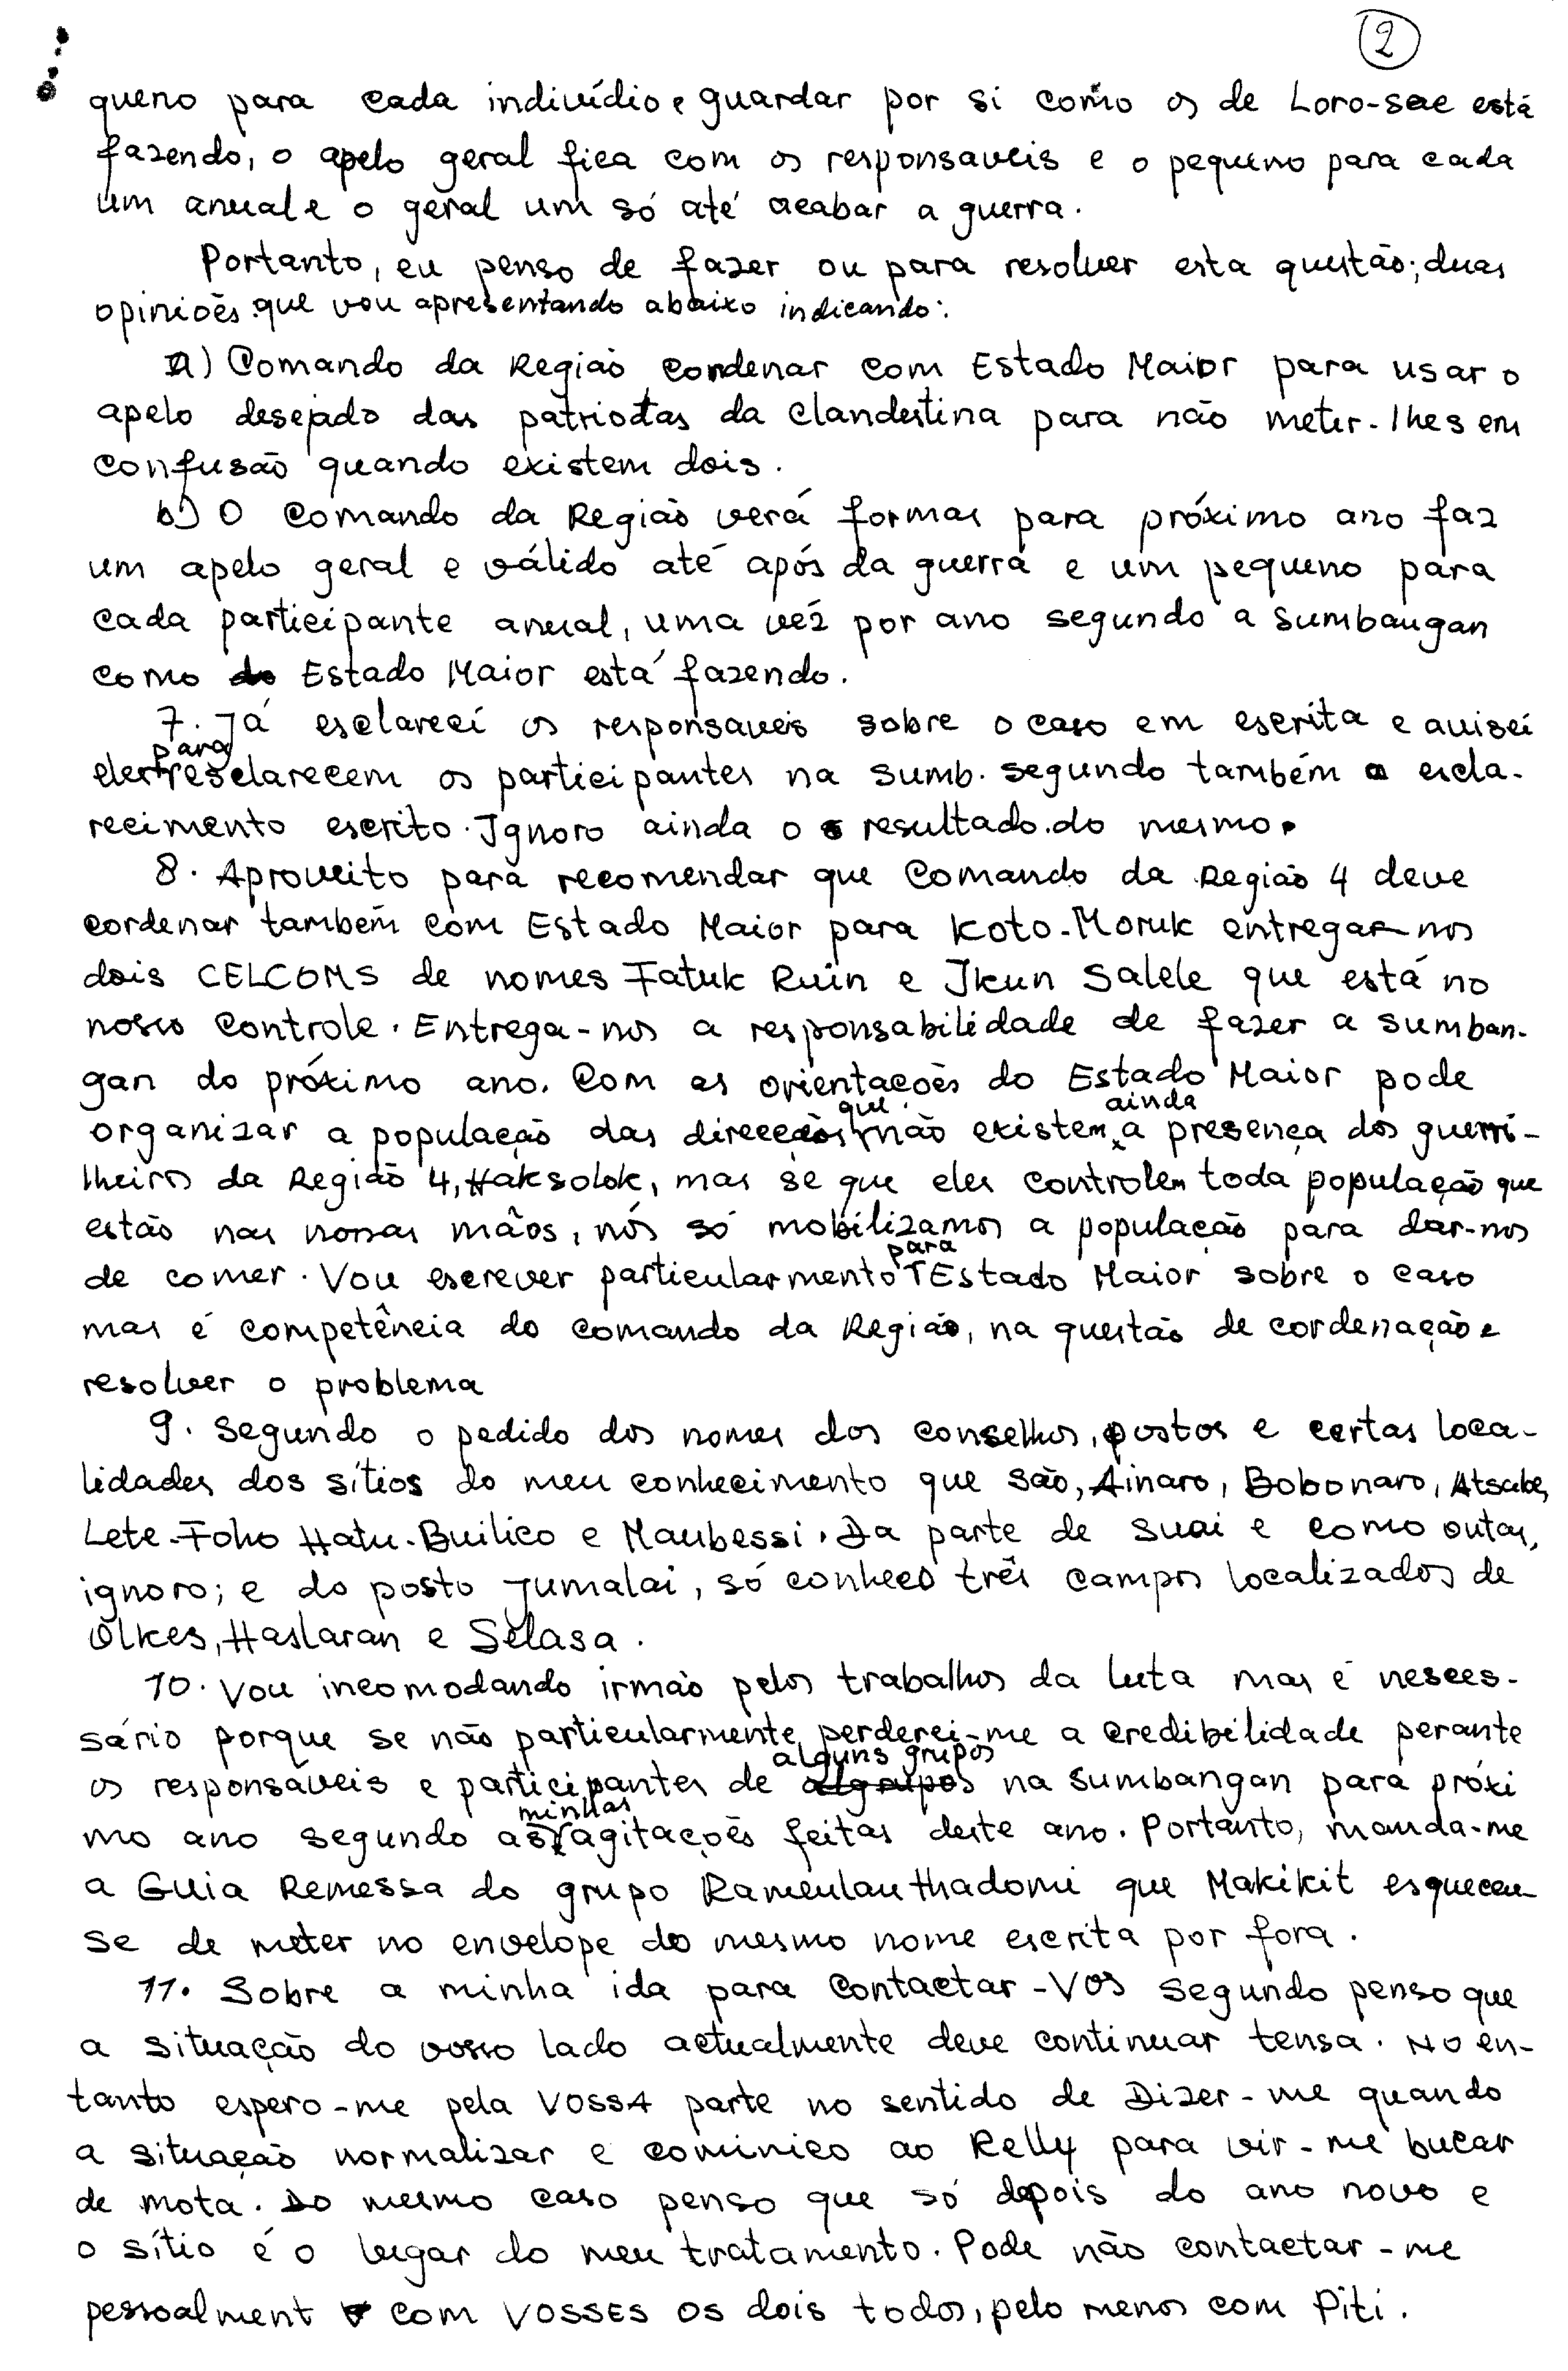 2
queno para cada indivídio e guardar por si como os de Loro-sae está
fazendo, o apelo geral fica com os responsaveis e o pequeno para cada
um anual e o geral um só até acabar a guerra.
Portanto, eu penso de fazer ou para resolver esta questão; duas
opinioẽs que vou apresentando abaixo indicando:
a) Comando da Região condenar com Estado Maior para usar o
apelo desejado das patriotas da clandestina para não meter-lhes em
confusão quando existem dois.
b) O Comando da Região verá formas para próximo ano faz
um apelo geral e válido até após da guerra e um pequeno para
cada participante anual, uma vez por ano segundo a sumbangan
como Estado Maior está fazendo.
7. Já esclarecí os responsaveis sobre o caso em escrita e avisei
eles para esclarecem os participantes na sumb. segundo também a escla-
recimento escrito. Ignoro ainda o resultado do mesmo.
8. Aproveito para recomendar que Comando da Região 4 deve
cordenar também com Estado Maior para Koto-Moruk entregar-nos
dois CELCOMS de nomes Fatuk Ruin e Ikun Salele que está no
nosso controle. Entrega-nos a responsabilidade de fazer a sumban-
gan do próximo ano. Com as orientacoẽs do Estado Maior pode
organizar a população das direccoẽs que não existem ainda a presença dos guerri-
lheiros da Região 4, Haksolok, mas se que eles controlem toda população que
estão nas nossas mãos, nós só mobilizamos a população para dar-nos
de comer. Vou escrever particularmento para Estado Maior sobre o caso
mas é competência do comando da Região, na questão de cordenação e
resolver o problema
9. Segundo o pedido dos nomes dos conselhos, postos e certas loca-
lidades dos sítios do meu conhecimento que são, Ainaro, Bobonaro, Atsabe,
Lete-Foho Hatu-Builico e Maubessi. Da parte de Suai e como outas,
ignoro; e do posto Jumalai, só conheço três campos localizados de
Olkes, Haslaran e Selasa.
10. Vou incomodando irmão pelos trabalhos da luta mas é nesces-
sário porque se não particularmente perderei-me a credibilidade perante
os responsáveis e participantes de alguns grupos na sumbangan para próxi
mo ano segundo as minhas agitaçoẽs feitas deste ano. Portanto, manda-me
a Guia Remessa do grupo Rameulau Hadomi que Makikit esqueceu-
se de meter no envelope do mesmo nome escrita por fora.
11. Sobre a minha ida para contactar-vos segundo penso que
a situação do vosso lado actualmente deve continuar tensa. No en-
tanto espero-me pela vossa parte no sentido de Dizer-me quando
a situação normalizar e cominico ao Relly para vir-me bucar
de mota. Do mesmo caso penso que só depois do ano novo e
o sítio é o lugar do meu tratamento. Pode não contactar-me
pessoalment com VOSSES os dois todos, pelo menos com Piti.